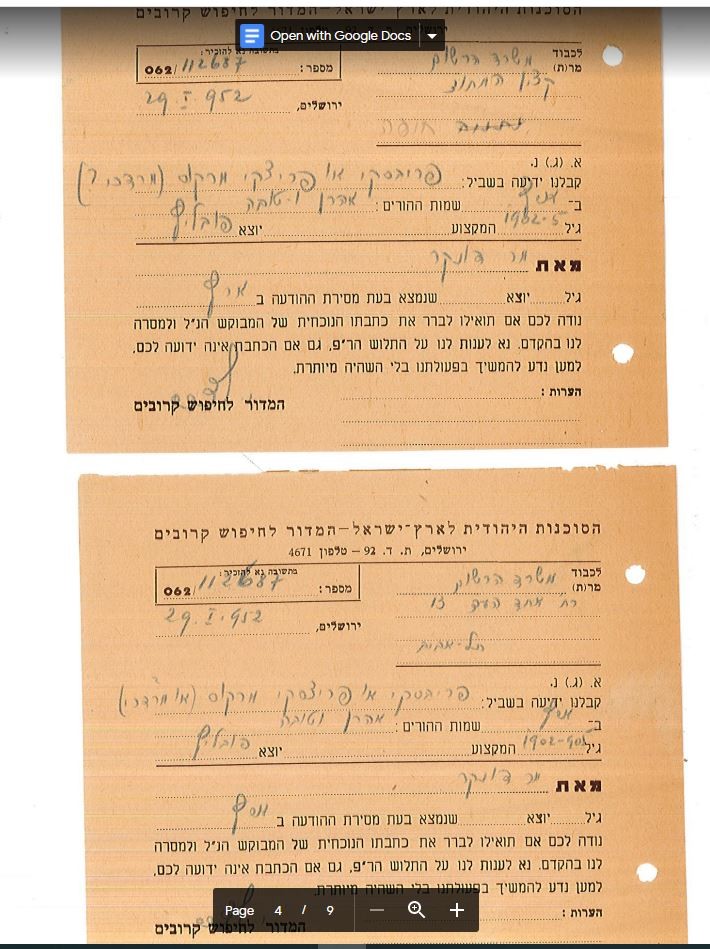 הסוכנות היהודית לארץ־ישראל–המדור לחיפוש קרובים
Open with Google Docs
בתשובה נא להזכיר:
מספר: 112687 /062
לכבוד
מר(ת) משרד הרשום
ירושלים, 29.I.952
א. (ג.) נ.
קבלנו ידיעה בשביל: פריבסקי או פריצקי מרקוס (מרדכי ?)
ב־ שמות ההורים: אהרן וטובה
גיל המקצוע יוצא
מאת מר
גיל יוצא שנמצא בעת מסירת ההודעה ב
נודה לכם אם תואילו לברר את כתבתו הנוכחית של המבוקש הנ"ל ולמסרה
לנו בהקדם. נא לענות לנו על התלוש הר"פ, גם אם הכתבת אינה ידועה לכם,
למען נדע להמשיך בפעולתנו בלי השהיה מיותרת.
הערות:
המדור לחיפוש קרובים
הסוכנות היהודית לארץ־ישראל–המדור לחיפוש קרובים
ירושלים, ת. ד. 92 – טלפון 4671
בתשובה נא להזכיר:
מספר: 112687 /062
לכבוד
מר(ת) משרד הרשום
רח אחד העם 13
ירושלים, 29.I.952
תל-אביב
א. (ג.) נ.
קבלנו ידיעה בשביל: פריבסקי או פריצסקי מרקוס (או מרדכי)
ב־ שמות ההורים: אהרן וטובה
גיל 1902-905 המקצוע יוצא
מאת מר
גיל יוצא שנמצא בעת מסירת ההודעה ב
נודה לכם אם תואילו לברר את כתבתו הנוכחית של המבוקש הנ"ל ולמסרה
לנו בהקדם. נא לענות לנו על התלוש הר"פ, גם אם הכתבת אינה ידועה לכם,
למען נדע להמשיך בפעולתנו בלי השהיה מיותרת.
Page 4 / 9
הערות:
המדור לחיפוש קרובים